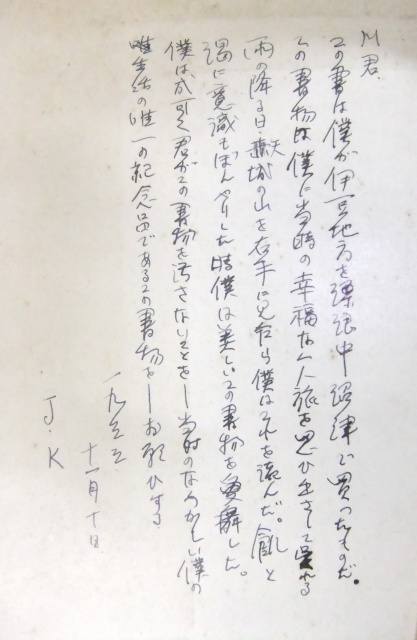 M君.
この書は僕が伊豆地方を漂浪中沼津で買ったものだ。
この書物は僕に当時の幸福な一人旅を思ひ出さして呉れる
雨の降る日・天城の山を右手に見乍ら僕はそれを読んだ。飢と
渇に意識もぼんやりした時僕は美しいこの書物を愛撫した。
僕は、成可く君がこの書物を汚さないことを—当時のなつかしい僕の
生活の唯一の紀念品であるこの書物を—お願ひする
十一月十日
J.K